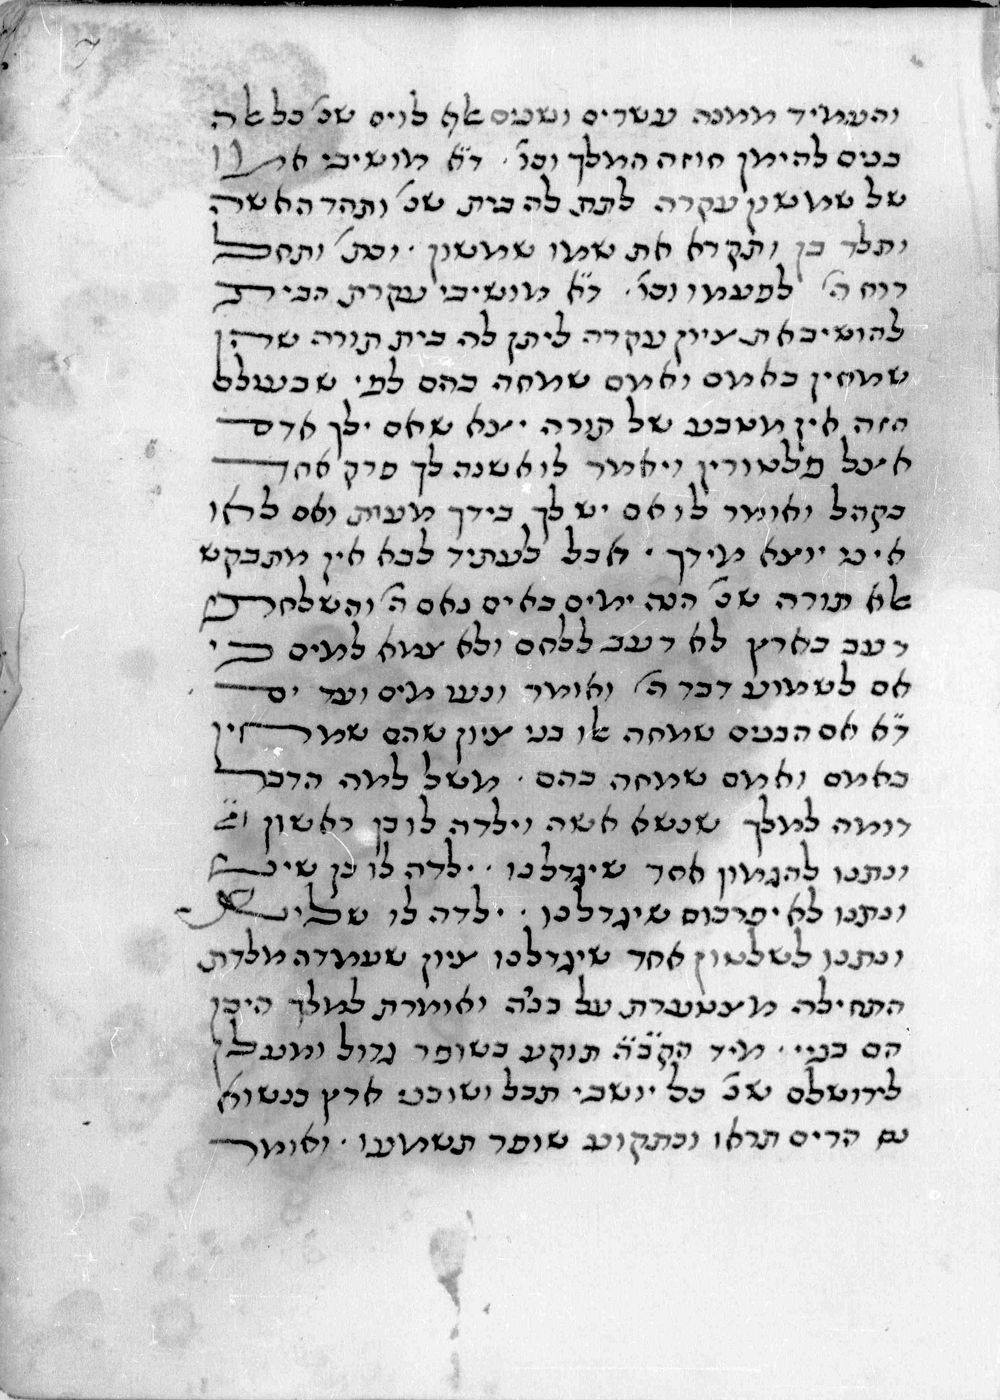 והעמיד ממנה עשרים ושנים אלף לוים שנ' כל אלה
בנים להימן חוזה המלך וכו'. ד"א מושיבי אמן
של שמשון עקרה לתת לה בית שנ' ותהר האשה
ותלד בן ותקרא את שמו שמשון. וכת' ותחל
רוח ה' לפעמו וכו'. ד"א מושיבי עקרת הבית
להושיב את ציון עקרה ליתן לה בית תורה שהן
שמחין באמם ואמם שמחה בהם לפי שבעולם
הזה אין מטבע של תורה יוצא שאם ילך אדם
אצל פלטורין ויאמר לו אשנה לך פרק אחד
בקהל ואומר לו אם יש לך בידך מעות ואם לאו
אינו יוצא מידך. אבל לעתיד לבא אין מתבקש
אלא תורה שנ' הנה ימים באים נאם ה' והשלחתי
רעב בארץ לא רעב ללחם ולא צמא למים כי
אם לשמוע דבר ה' ואומר ונעו מים ועד ים
ד"א אם הבנים שמחה אלו בני ציון שהם שמחין
באמם ואמם שמחה בהם. משל למה הדבר
דומה למלך שנשא אשה וילדה לו בן ראשון
ונתנו להגמון אחד שיגדלנו. ילדה לו בן שיני
ונתנו לאיפרכוס שיגדלנו. ילדה לו שלישי
ונתנו לשלטון אחד שיגדלנו ציון שעמדה מלדת
התחילה מצטערת על בניה ואומרת למלך היכן
הם בניי. מיד הקב"ה תוקע בשופר גדול ומעלן
לירושלם שנ' כל יושבי תבל ושוכני ארץ כנשוא
נס הרים תראו וכתקוע שופר תשמעו. ואומר